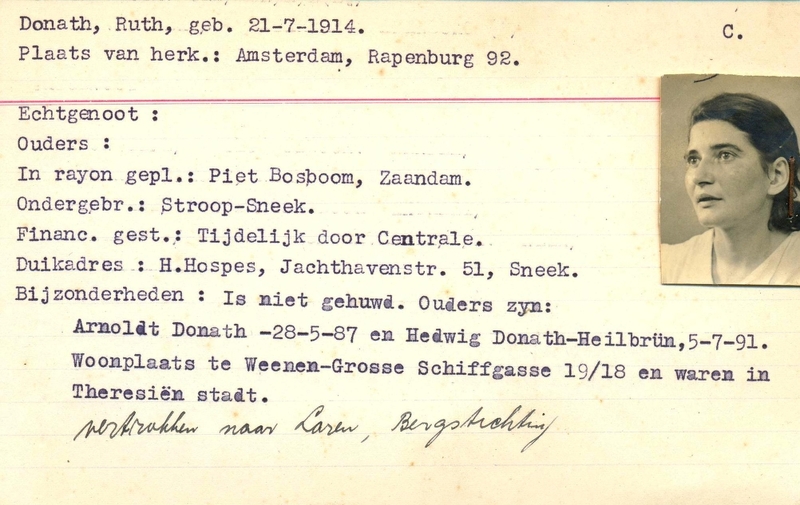 Donath, Ruth, geb. 21-7-1914.
C.
Plaats van herk.: Amsterdam, Rapenburg 92.
Echtgenoot :
Ouders :
In rayon gepl.: Piet Bosboom, Zaandam.
Ondergebr.: Stroop-Sneek.
Financ. gest.: Tijdelijk door Centrale.
Duikadres : H.Hospes, Jachthavenstr. 51, Sneek.
Bijzonderheden : Is niet gehuwd. Ouders zyn:
Arnoldt Donath -28-5-87 en Hedwig Donath-Heilbrün,5-7-91.
Woonplaats te Weenen-Grosse Schiffgasse 19/18 en waren in
Theresiën stadt.
vertrokken naar Laren, Bergstichting